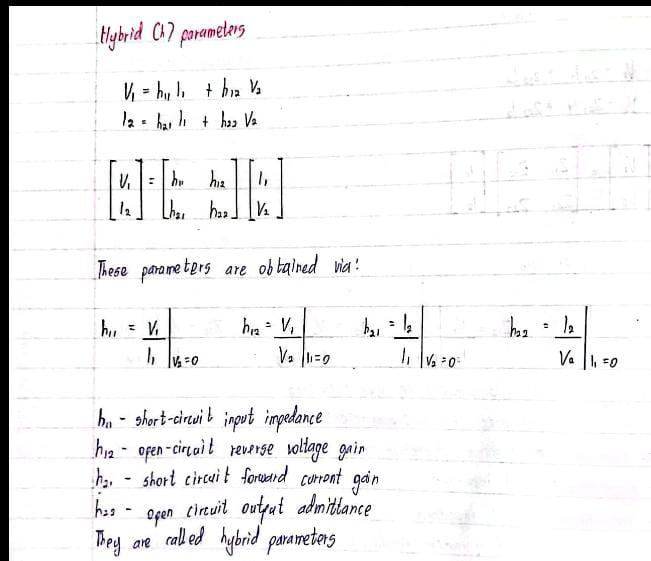 Hybrid Ch7 parameters
V₁ = h₁₁ I₁ + h₁₂ V₂
I₂ = h₂₁ I₁ + h₂₂ V₂
[V₁ I₂] = [h₁₁ h₁₂ h₂₁ h₂₂] [I₁ V₂]
These parameters are obtained via:
h₁₁ = V₁/I₁ |V₂=0 h₁₂ = V₁/V₂ |I₁=0 h₂₁ = I₂/I₁ |V₂=0 h₂₂ = I₂/V₂ |I₁=0
h₁₁ - short-circuit input impedance
h₁₂ - open-circuit reverse voltage gain
h₂₁ - short circuit forward current gain
h₂₂ - open circuit output admittance
They are called hybrid parameters